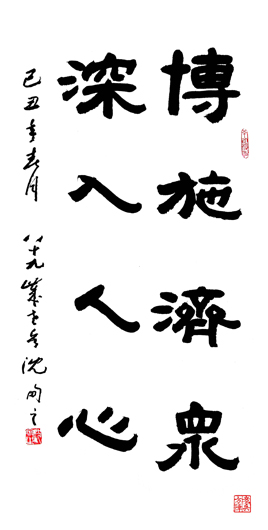 博施濟衆
深入人心
己丑年春月
八十九歲老兵沈向之